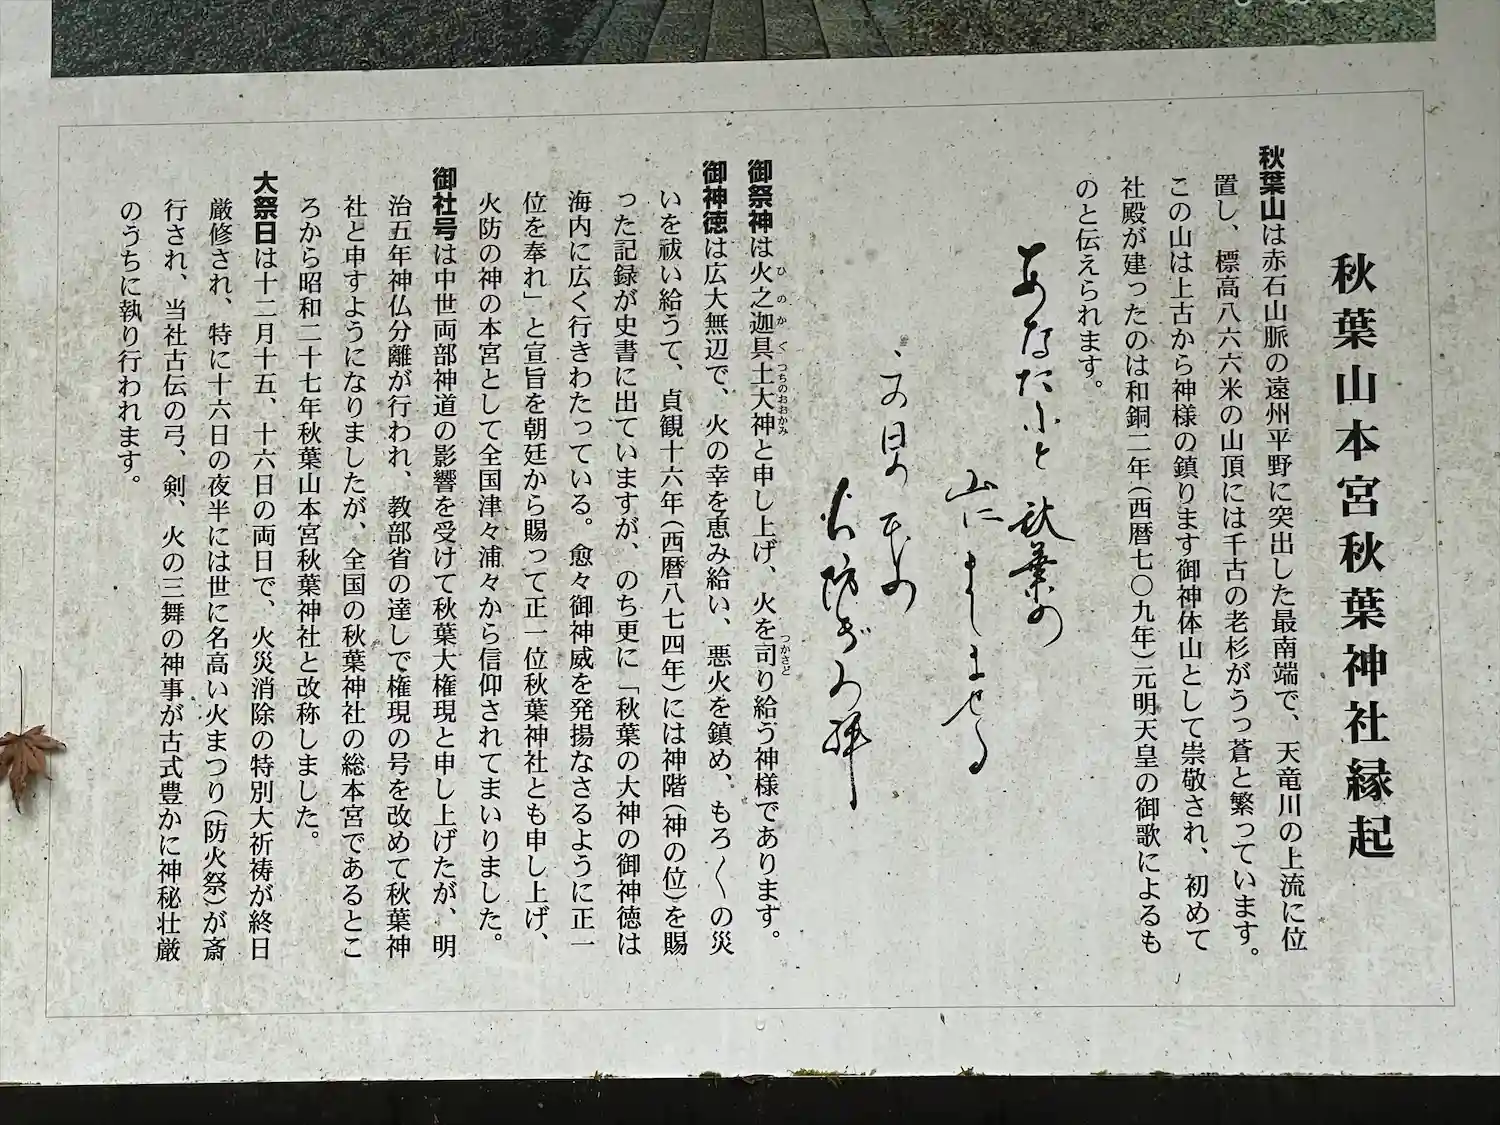 秋葉山本宮秋葉神社縁起
秋葉山は赤石山脈の遠州平野に突出した最南端で、天竜川の上流に位
置し、標高八六六米の山頂には千古の老杉がうっ蒼と繁っています。
この山は上古から神様の鎮ります御神体山として崇敬され、初めて
社殿が建ったのは和銅二年(西暦七〇九年)元明天皇の御歌によるも
のと伝えられます。
あなたふと秋葉の
山にましませる
火防ぎの神
御祭神は火之迦具土大神と申し上げ、火を司り給う神様であります。
ひのかぐつちのおおかみ
つかさど
御神徳は広大無辺で、火の幸を恵み給い、悪火を鎮め、もろ〱の災
いを祓い給うて、貞観十六年(西暦八七四年)には神階(神の位)を賜
った記録が史書に出ていますが、のち更に「秋葉の大神の御神徳は
海内に広く行きわたっている。愈々御神威を発揚なさるように正一
位を奉れ」と宣旨を朝廷から賜って正一位秋葉神社とも申し上げ、
火防の神の本宮として全国津々浦々から信仰されてまいりました。
御社号は中世両部神道の影響を受けて秋葉大権現と申し上げたが、明
治五年神仏分離が行われ、教部省の達しで権現の号を改めて秋葉神
社と申すようになりましたが、全国の秋葉神社の総本宮であるとこ
ろから昭和二十七年秋葉山本宮秋葉神社と改称しました。
大祭日は十二月十五、十六日の両日で、火災消除の特別大祈祷が終日
厳修され、特に十六日の夜半には世に名高い火まつり(防火祭)が斎
行され、当社古伝の弓、剣、火の三舞の神事が古式豊かに神秘壮厳
のうちに執り行われます。